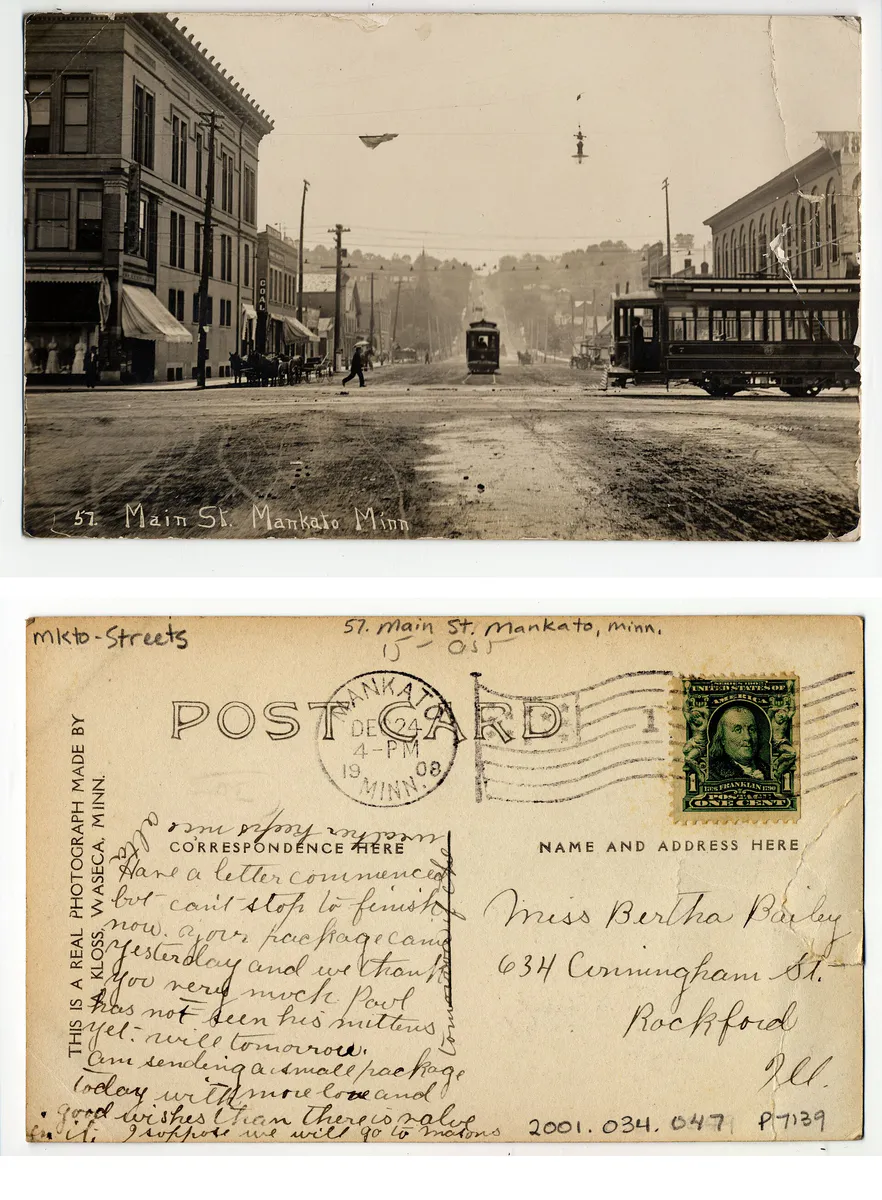 COAL
57. Main St. Mankato Minn
mkto-Streets
57. Main St. Mankato, minn.
15- 055
POST CARD
MANKATO
DEC 24
4-PM
1908
MINN.
1
SERIES 1902
UNITED STATES OF
AMERICA
1 1706 FRANKLIN 1790 1
POSTAGE
ONE CENT
THIS IS A REAL PHOTOGRAPH MADE BY
A KLOSS, WASECA, MINN.
CORRESPONDENCE HERE
NAME AND ADDRESS HERE
Have a letter commenced
but can't stop to finish
now. your package came
yesterday and we thank
you very much Paul
has not seen his mittens
yet. will tomorrow.
am sending a small package
today with more love and
good wishes than there is value
in it. I suppose we will go to masons
tomorrow if the
weather keeps nice
alta
Miss Bertha Bailey
634 Cunningham St.
Rockford
Ill.
2001.034.047 P7139